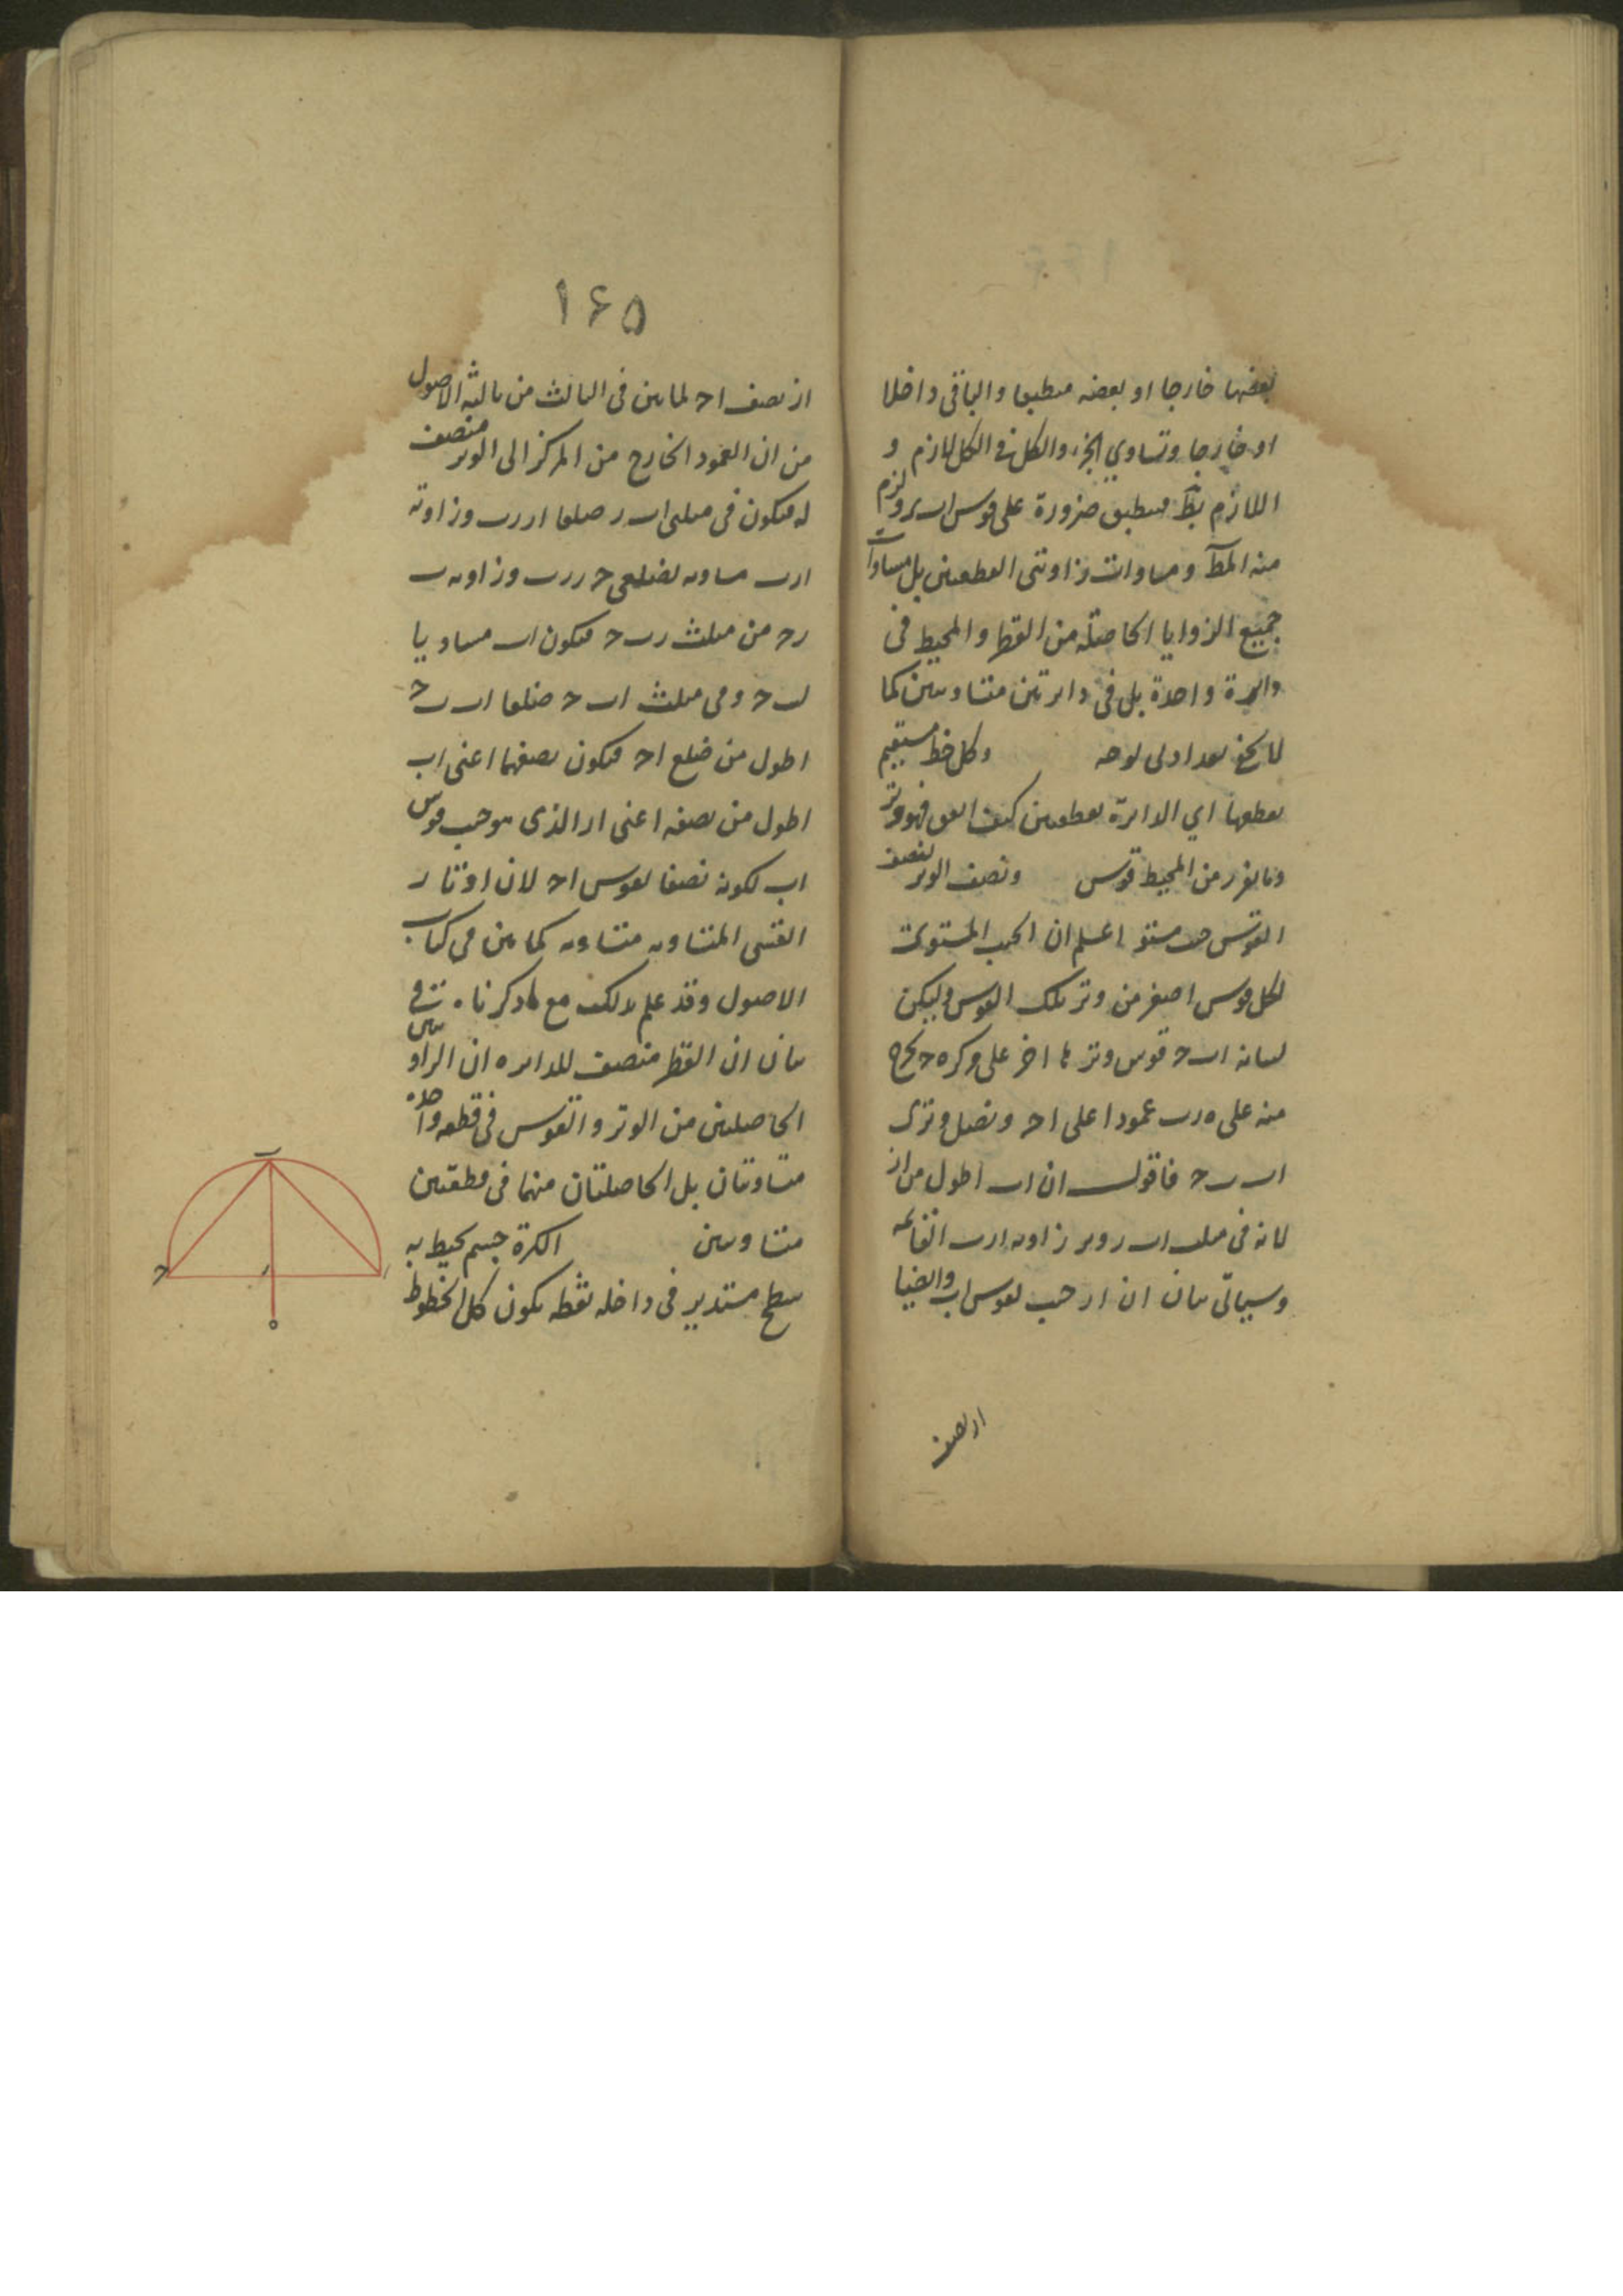 بعضها خارجا او بعضه منطبقا والباقى داخلا
او خارجا وتساوي الجزء والكل فى الكل لازم و
اللازم بط منطبق ضرورة على قوس ا ب ر ولزم
منه المط ومساوات زاويتى القطعتين بل مساوات
جميع الزوايا الحاصلة من القطر والمحيط فى
دايرة واحدة بل فى دايرتين متساويتين كما
لا يخفى بعد ادنى توجه وكل خط مستقيم
يقطعها اي الدايرة بقطعتين كيف اتفق فهو وتر
وما يفرز من المحيط قوس ونصف الوتر لنصف
القوس جيب مستو اعلم ان الجيب المستوى
لكل قوس اصغر من وتر تلك القوس وليكن
لبيانه ا ب ح قوس وترها ا ح على مركز ه ونخرج
منه على ه ر ب عمودا على ا ح ونصل وترى
ا ب ب ح فاقول ان ا ب اطول من ا ر
لانه فى مثلث ا ب ر وتر زاوية ا ر ب القائمه
وسياتى بيان ان ا ر جيب لقوس ا ب وايضا
ا ر نصف
١٦٥
ا ر نصف ا ح لما بين فى الثالث من ثالثه الاصول
من ان العمود الخارج من المركز الى الوتر منصف
له فيكون فى مثلثى ا ب ر ضلعا ا ر ر ب وزاوية
ا ر ب مساويه لضلعى ح ر ر ب وزاويه ب
ر ح من مثلث ر ب ح فيكون ا ب مساويا
ل ب ح وفى مثلث ا ب ح ضلعا ا ب ب ح
اطول من ضلع ا ح فيكون نصفهما اعنى ا ب
اطول من نصفه اعنى ا ر الذى هو جيب قوس
ا ب لكونه نصفا لقوس ا ح لان اوتار
القسى المتساويه متساويه كما بين فى كتاب
الاصول وقد علم بذلك مع ما ذكرناه فى
بيان ان القطر منصف للدايره ان الزاويتين
الحاصلتين من الوتر والقوس فى قطعه واحده
متساويتان بل الحاصلتان منهما فى قطعتين
متساويتين الكرة جسم يحيط به
سطح مستدير فى داخله نقطه يكون كل الخطوط
ب
ح
ر
ا
ه